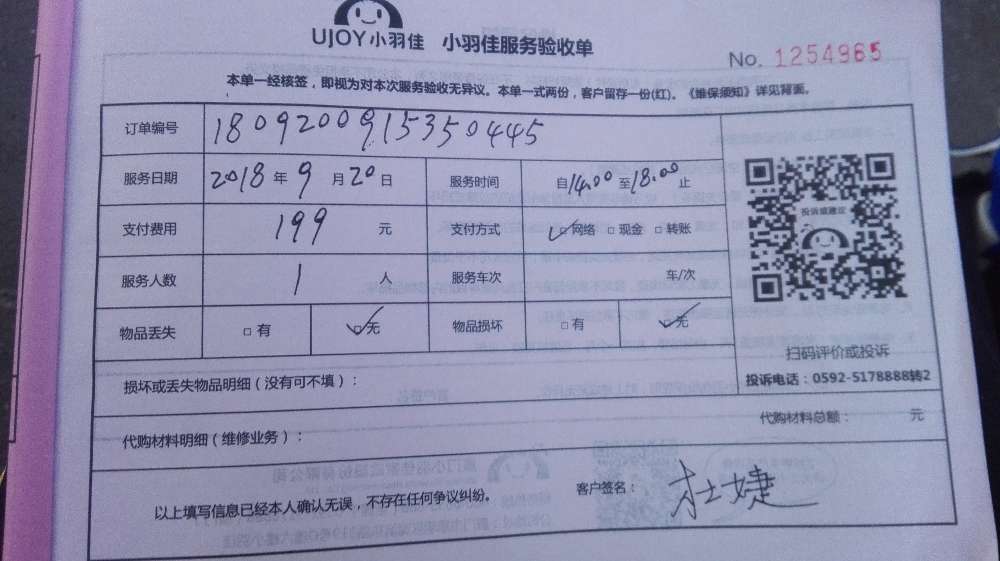 UJOY小羽佳 小羽佳服务验收单
No. 1254965
本单一经核签，即视为对本次服务验收无异议。本单一式两份，客户留存一份(红)。《维保须知》详见背面。
订单编号 1809200915350445
服务日期 2018年9月20日 服务时间 自14.00至18.00止
投诉或建议
支付费用 199 元 支付方式 ☑网络 □现金 □转账
服务人数 1 人 服务车次 车/次
物品丢失 □有 ☑无 物品损坏 □有 ☑无
扫码评价或投诉
投诉电话：0592-5178888转2
损坏或丢失物品明细（没有可不填）：
代购材料总额： 元
代购材料明细（维修业务）：
以上填写信息已经本人确认无误，不存在任何争议纠纷。 客户签名： 杜婕